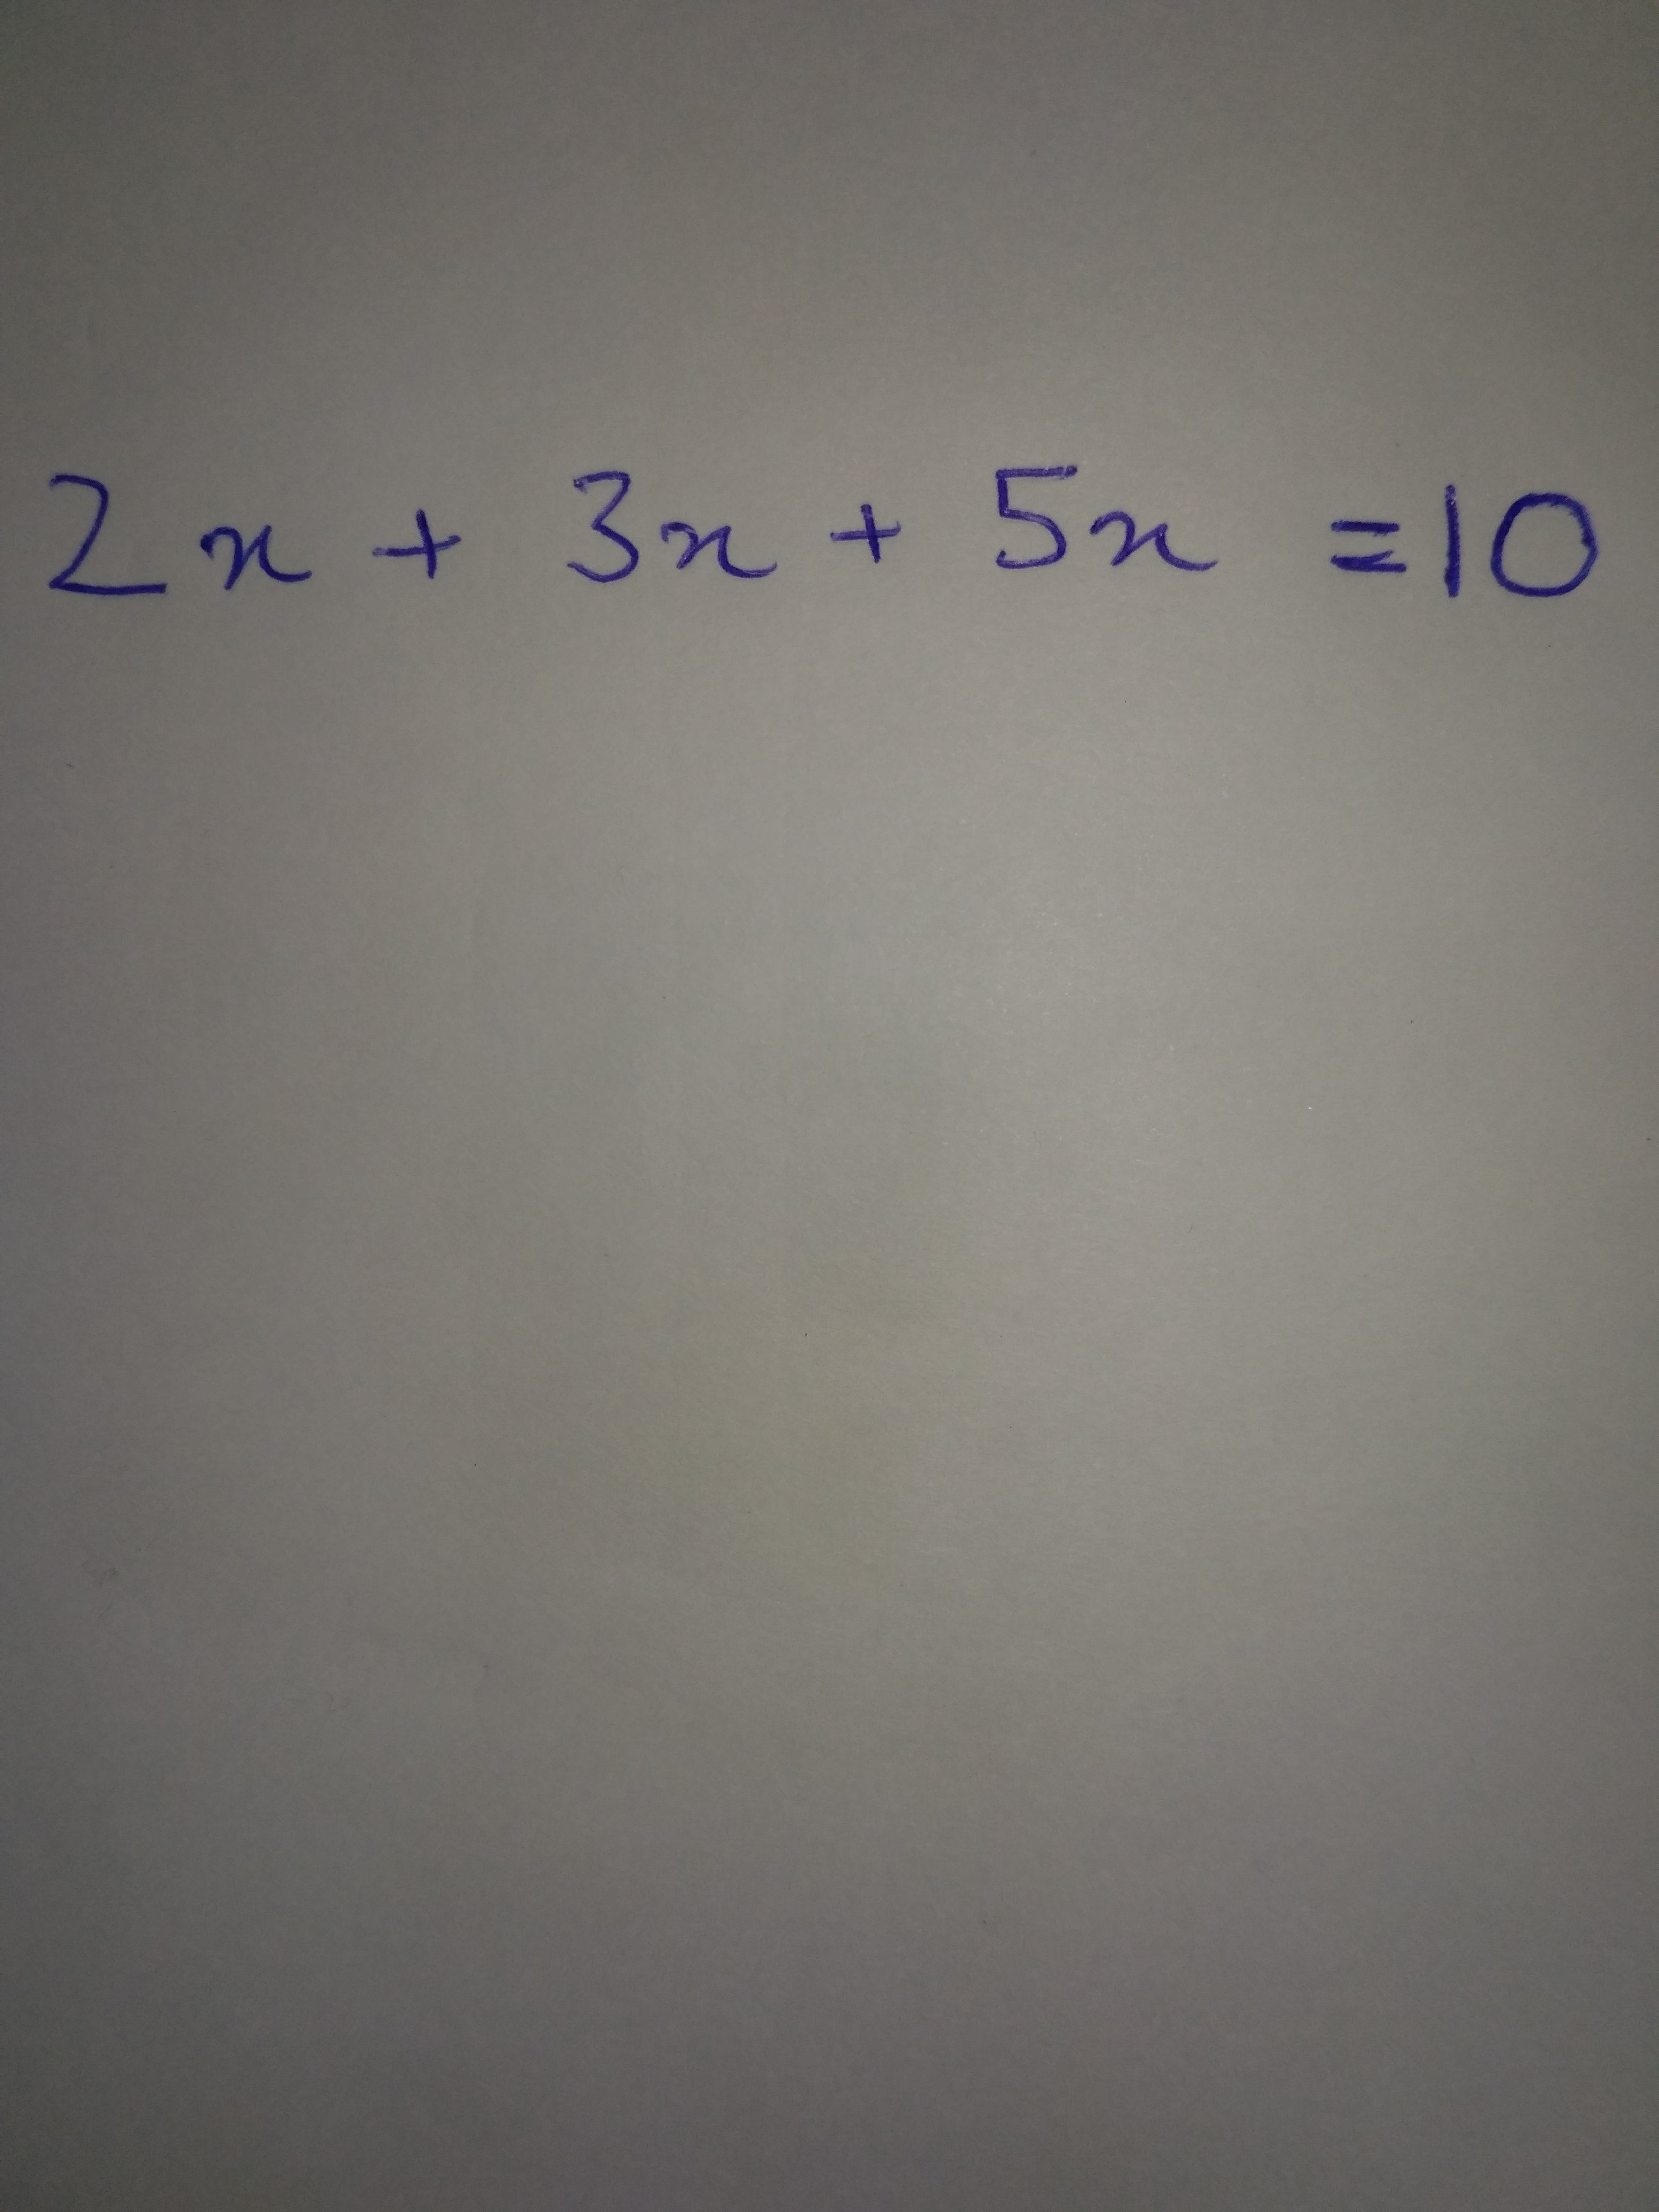 2x + 3x + 5x = 10